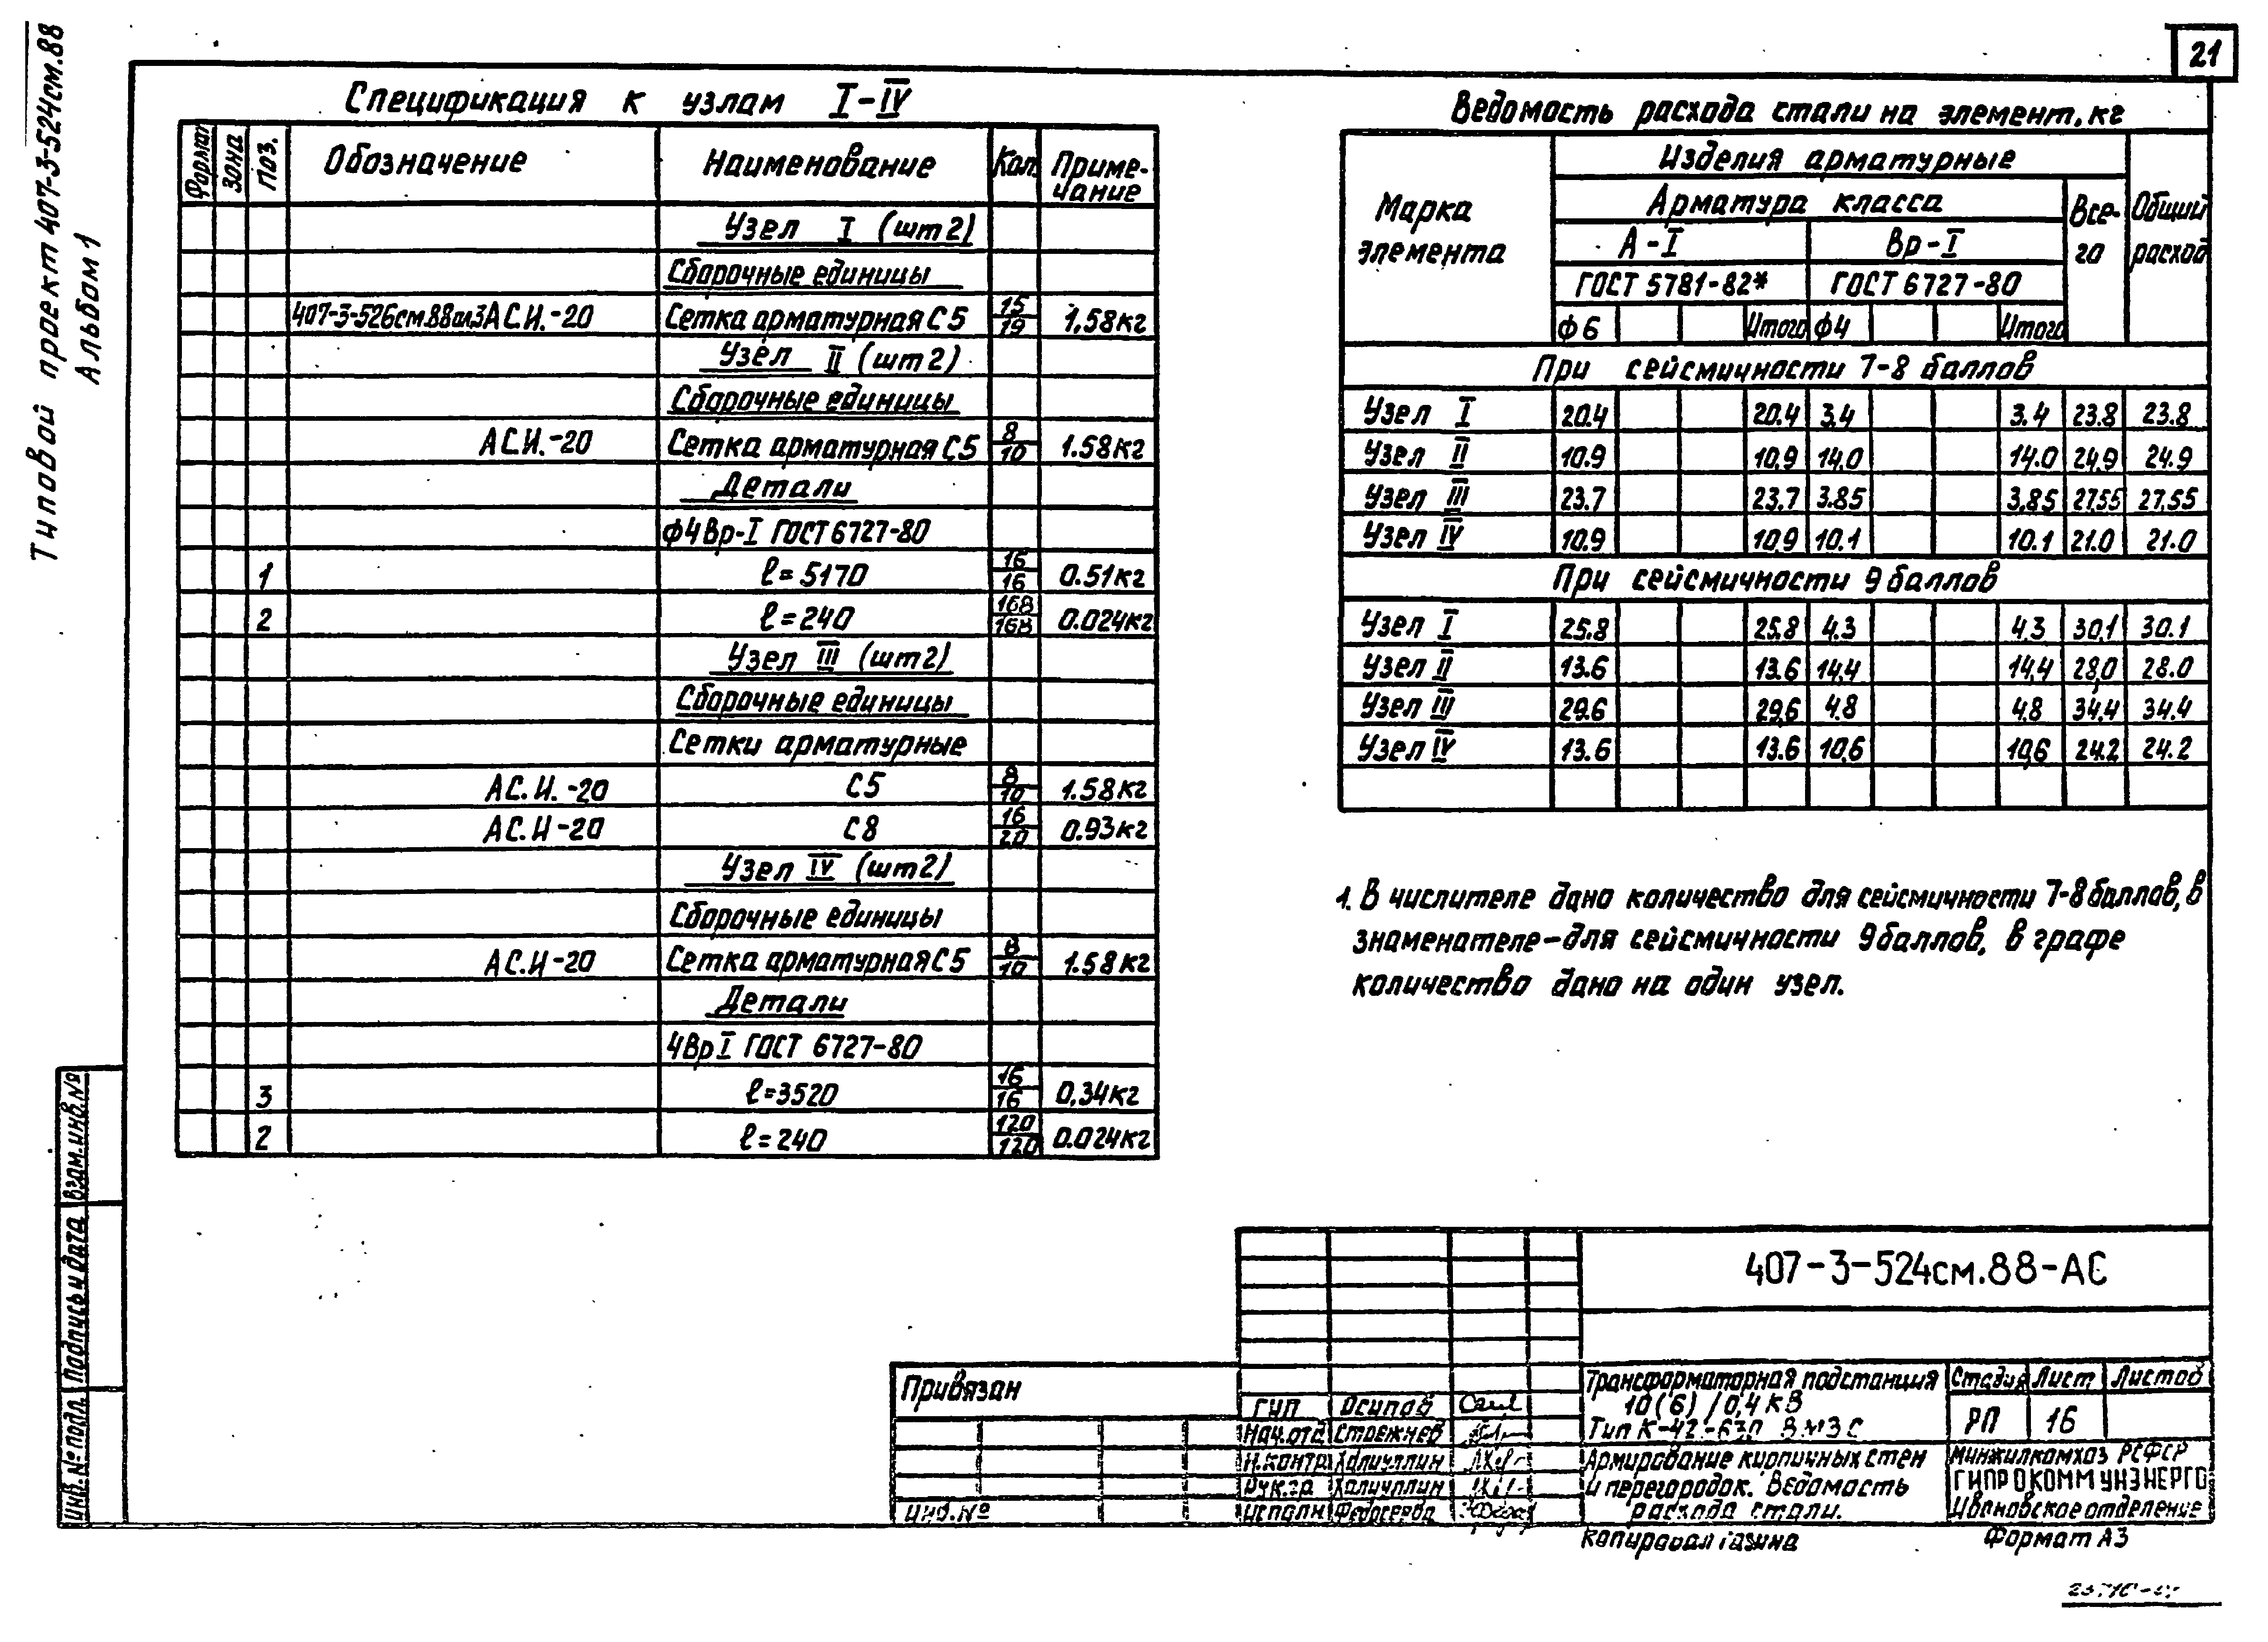 21
Типовой проект 407-3-524см.88
Альбом 1
Спецификация к узлам I-IV
Формат Зона Поз. Обозначение Наименование Кол. Приме-
чание
Узел I (шт2)
Сборочные единицы
407-3-526см.88ал.3АС.И.-20 Сетка арматурная С5 15/19 1,58кг
Узел II (шт2)
Сборочные единицы
АС.И.-20 Сетка арматурная С5 8/10 1.58кг
Детали
ф4Вр-I ГОСТ 6727-80
1 ℓ=5170 16/16 0.51кг
2 ℓ=240 168/168 0.024кг
Узел III (шт2)
Сборочные единицы
Сетки арматурные
АС.И.-20 С5 8/10 1.58кг
АС.И-20 С8 16/20 0.93кг
Узел IV (шт2)
Сборочные единицы
АС.И-20 Сетка арматурная С5 8/10 1.58кг
Детали
4Вр I ГОСТ 6727-80
3 ℓ=3520 16/16 0,34кг
2 ℓ=240 120/120 0.024кг
Ведомость расхода стали на элемент, кг
Марка
элемента
Изделия арматурные
Арматура класса
Все-
го
Общий
расход
А-I Вр-I
ГОСТ 5781-82* ГОСТ 6727-80
ф6 Итого ф4 Итого
При сейсмичности 7-8 баллов
Узел I 20.4 20.4 3.4 3.4 23.8 23.8
Узел II 10.9 10,9 14.0 14.0 24,9 24.9
Узел III 23.7 23,7 3.85 3,85 27,55 27,55
Узел IV 10.9 10,9 10.1 10.1 21.0 21.0
При сейсмичности 9 баллов
Узел I 25.8 25,8 4.3 4,3 30,1 30.1
Узел II 13.6 13.6 14,4 14,4 28,0 28.0
Узел III 29.6 29,6 4.8 4,8 34,4 34.4
Узел IV 13.6 13.6 10,6 10,6 24.2 24.2
1. В числителе дано количество для сейсмичности 7-8 баллов, в
знаменателе-для сейсмичности 9 баллов, в графе
количество дано на один узел.
Взам.инв.№
Подпись и дата
Инв.№ подл.
Привязан
Инв.№
407-3-524см.88-АС
ГИП Осипов
Нач.отд Стрежнев
Н.контр Халиуллин
Рук.гр. Халиуллин
Исполн Федосеева
Трансформаторная подстанция
10(6)/0,4кВ
Тип К-42-630
Стадия Лист Листов
РП 16
Армирование кирпичных стен
и перегородок. Ведомость
расхода стали.
Минжилкомхоз РСФСР
ГИПРОКОММУНЭНЕРГО
Ивановское отделение
Копировал
Формат А3